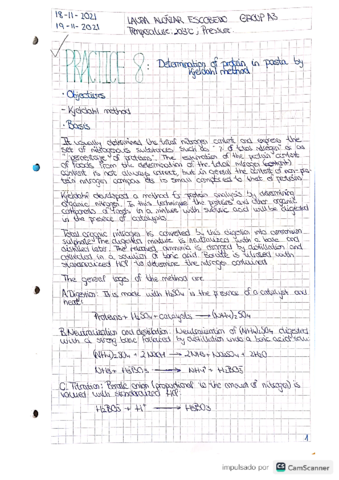 18-11-2021
19-11-2021
LAURA ALCÁZAR ESCOBEDO GROUP A3
Temperature: 20.5°C, Pressure
PRACTICE 8: Determination of protein in pasta by
Kjeldahl method
• Objectives
- Kjeldahl method
• Basis
It usually determined the total nitrogen content and express the
set of nitrogenous substances such as "% of total nitrogen" or as
"percentage of proteins". The estimation of the protein content
of foods from the determination of the total nitrogen content
is not always correct, but in general the content of non-pro
tein nitrogen compounds is small compared to that of protein.
Kjeldahl developed a method for protein analysis by determining
organic nitrogen. In this technique the proteins and other organic
components of foods in a mixture with sulfuric acid will be digested
in the presence of catalysts.
Total organic nitrogen is converted by this digestion into ammonium
sulphate. The digested mixture is neutralized with a base and
distilled later. The released ammonia is removed by distillation and
collected in a solution of boric acid. Borate is titrated with
standardized HCl to determine the nitrogen contained.
The general steps of the method are
A. Digestion: This made with H₂SO₄ in the presence of a catalyst and
heat:
Proteins + H₂SO₄ + catalysts → (NH₄)₂SO₄
B. Neutralization and distillation: Neutralization of (NH₄)₂SO₄ digested
with a strong base followed by distillation under a boric acid
(NH₄)₂SO₄ + 2NaOH → 2NH₃ + Na₂SO₄ + 2H₂O
NH₃ + H₃BO₃ → NH₄⁺ + H₂BO₃⁻
C. Titration: Borate anion (proportional to the amount of nitrogen) is
titrated with standardized HCl:
H₂BO₃⁻ + H⁺ → H₃BO₃
1
impulsado por CS CamScanner